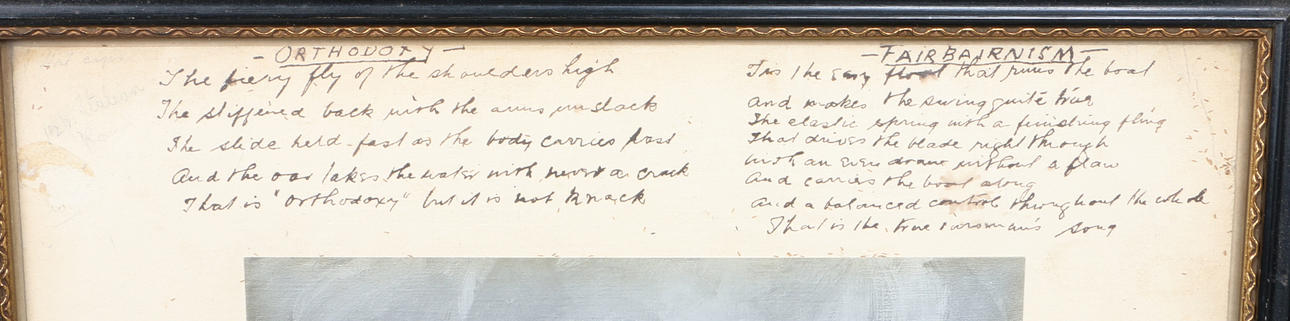 - ORTHODOXY -
The fiery fly of the shoulders high
The stiffened back with the arms unslack
The slide held-fast as the body carries past
And the oar takes the water with never a crack
That is "Orthodoxy" but it is not Knack
- FAIRBAIRNISM -
Tis the easy float that runs the boat
and makes the swing quite true
The elastic spring with a finishing fling
That drives the blade right through
with an even draw without a flaw
And carries the boat along
And a balanced control throughout the whole
That is the true oarsman's song